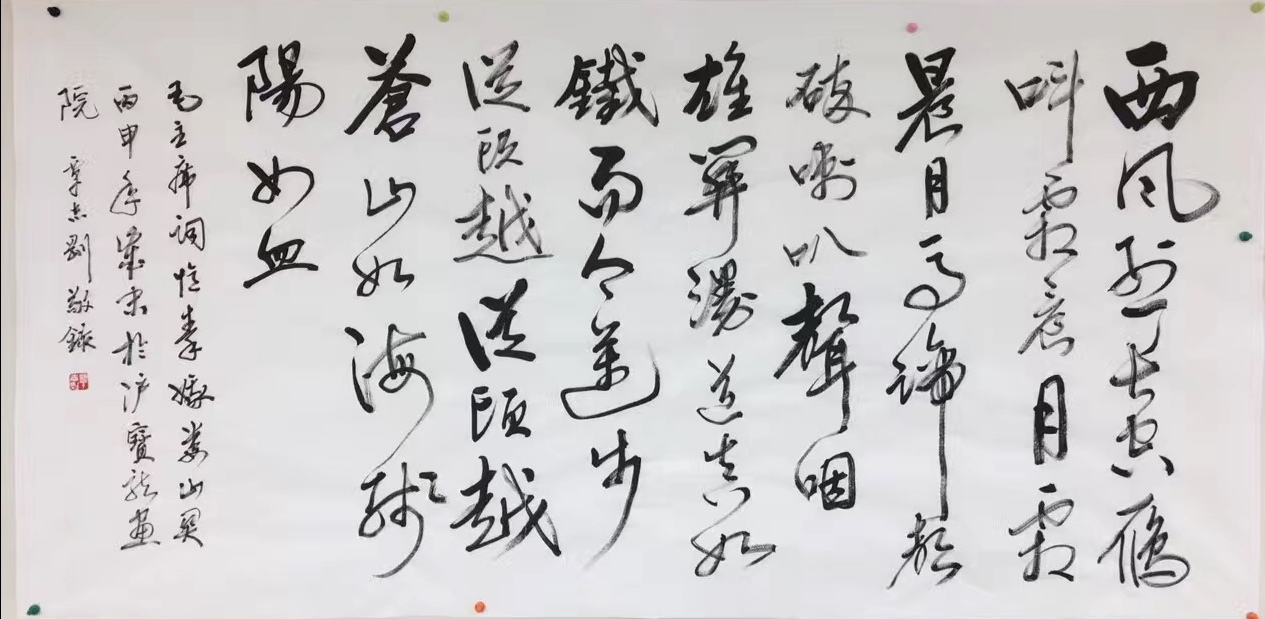 西风烈長空雁
叫霜晨月霜
晨月馬蹄聲
碎喇叭聲咽
雄關漫道真如
鐵而今邁步
從頭越從頭越
蒼山如海殘
陽如血
毛主席詞憶秦娥婁山関
丙申年歲末於沪寶龍画
院 覃志剛敬錄